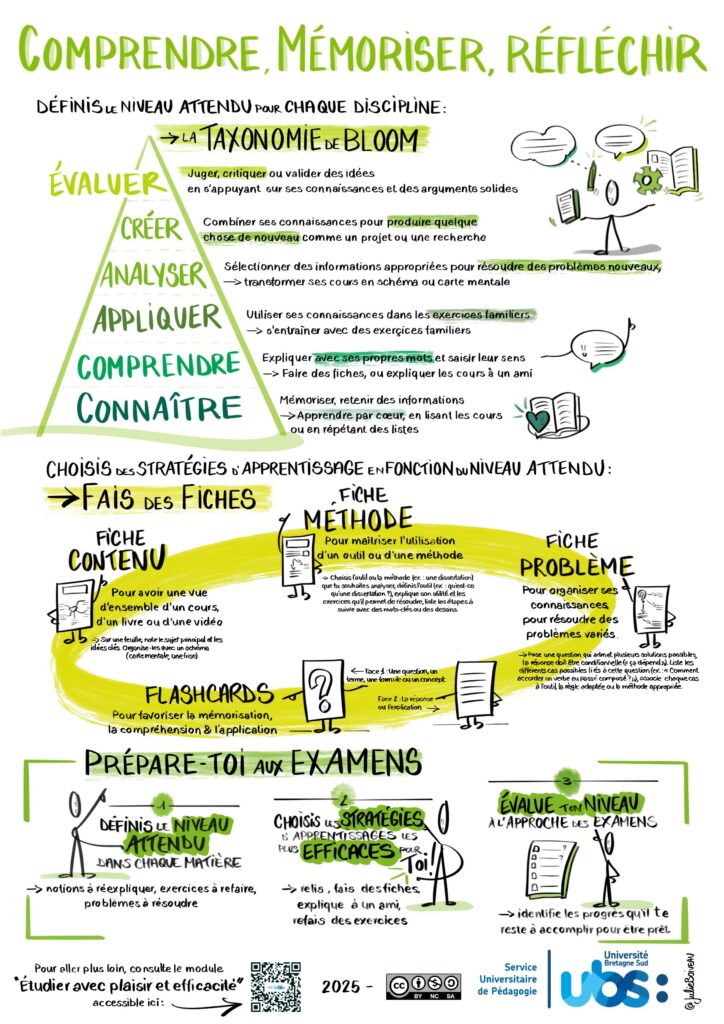 COMPRENDRE, MÉMORISER, RÉFLÉCHIR
DÉFINIS LE NIVEAU ATTENDU POUR CHAQUE DISCIPLINE :
→ LA TAXONOMIE DE BLOOM
ÉVALUER
Juger, critiquer ou valider des idées
en s'appuyant sur ses connaissances et des arguments solides
CRÉER
Combiner ses connaissances pour produire quelque
chose de nouveau comme un projet ou une recherche
ANALYSER
Sélectionner des informations appropriées pour résoudre des problèmes nouveaux,
→ transformer ses cours en schéma ou carte mentale
APPLIQUER
Utiliser ses connaissances dans les exercices familiers
→ s'entraîner avec des exerçices familiers
COMPRENDRE
Expliquer avec ses propres mots et saisir leur sens
→ Faire des fiches, ou expliquer les cours à un ami
CONNAÎTRE
Mémoriser, retenir des informations
→ Apprendre par cœur, en lisant les cours
ou en répétant des listes
CHOISIS DES STRATÉGIES D'APPRENTISSAGE EN FONCTION DU NIVEAU ATTENDU :
→ FAIS DES FICHES
FICHE
CONTENU
Pour avoir une vue
d'ensemble d'un cours,
d'un livre ou d'une vidéo
→ Sur une feuille, note le sujet principal et les
idées clés. Organise-les avec un schéma
(carte mentale, une frise).
FICHE
MÉTHODE
Pour maîtriser l'utilisation
d'un outil ou d'une méthode
→ Choisis l'outil ou la méthode (ex : une dissertation)
que tu souhaites analyser, définis l'outil (ex : qu'est-ce
qu'une dissertation ?), explique son utilité et les
exercices qu'il permet de résoudre, liste les étapes à
suivre avec des mots-clés ou des dessins.
FICHE
PROBLÈME
Pour organiser ses
connaissances,
pour résoudre des
problèmes variés.
→ Pose une question qui admet plusieurs solutions possibles,
la réponse doit être conditionnelle (« ça dépend »). Liste les
différents cas possibles liés à cette question (ex : « Comment
accorder un verbe au passé composé ? »), associe chaque cas
à l'outil, la règle adaptée ou la méthode appropriée.
FLASHCARDS
Pour favoriser la mémorisation,
la compréhension & l'application
?
← Face 1 : Une question, un
terme, une formule ou un concept
Face 2 : La réponse
ou l'explication →
PRÉPARE-TOI AUX EXAMENS
1
DÉFINIS LE NIVEAU
ATTENDU
DANS CHAQUE MATIÈRE
→ notions à réexpliquer, exercices à refaire,
problèmes à résoudre
2
CHOISIS LES STRATÉGIES
D'APPRENTISSAGES LES
PLUS EFFICACES POUR
TOI!
→ relis, fais des fiches,
explique à un ami,
refais des exercices
3
ÉVALUE TON NIVEAU
À L'APPROCHE DES EXAMENS
→ identifie les progrès qu'il te
reste à accomplir pour être prêt.
Pour aller plus loin, consulte le module
"Étudier avec plaisir et efficacité"
accessible ici :
2025 -
CC BY NC SA
Service
Universitaire
de Pédagogie
Université
Bretagne Sud
ubs:
@JulieBoiveau